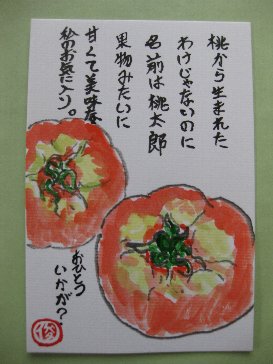 桃から生まれた
わけじゃないのに
名前は桃太郎
果物みたいに
甘くて美味な
私のお気に入り。
おひとつ
いかが?